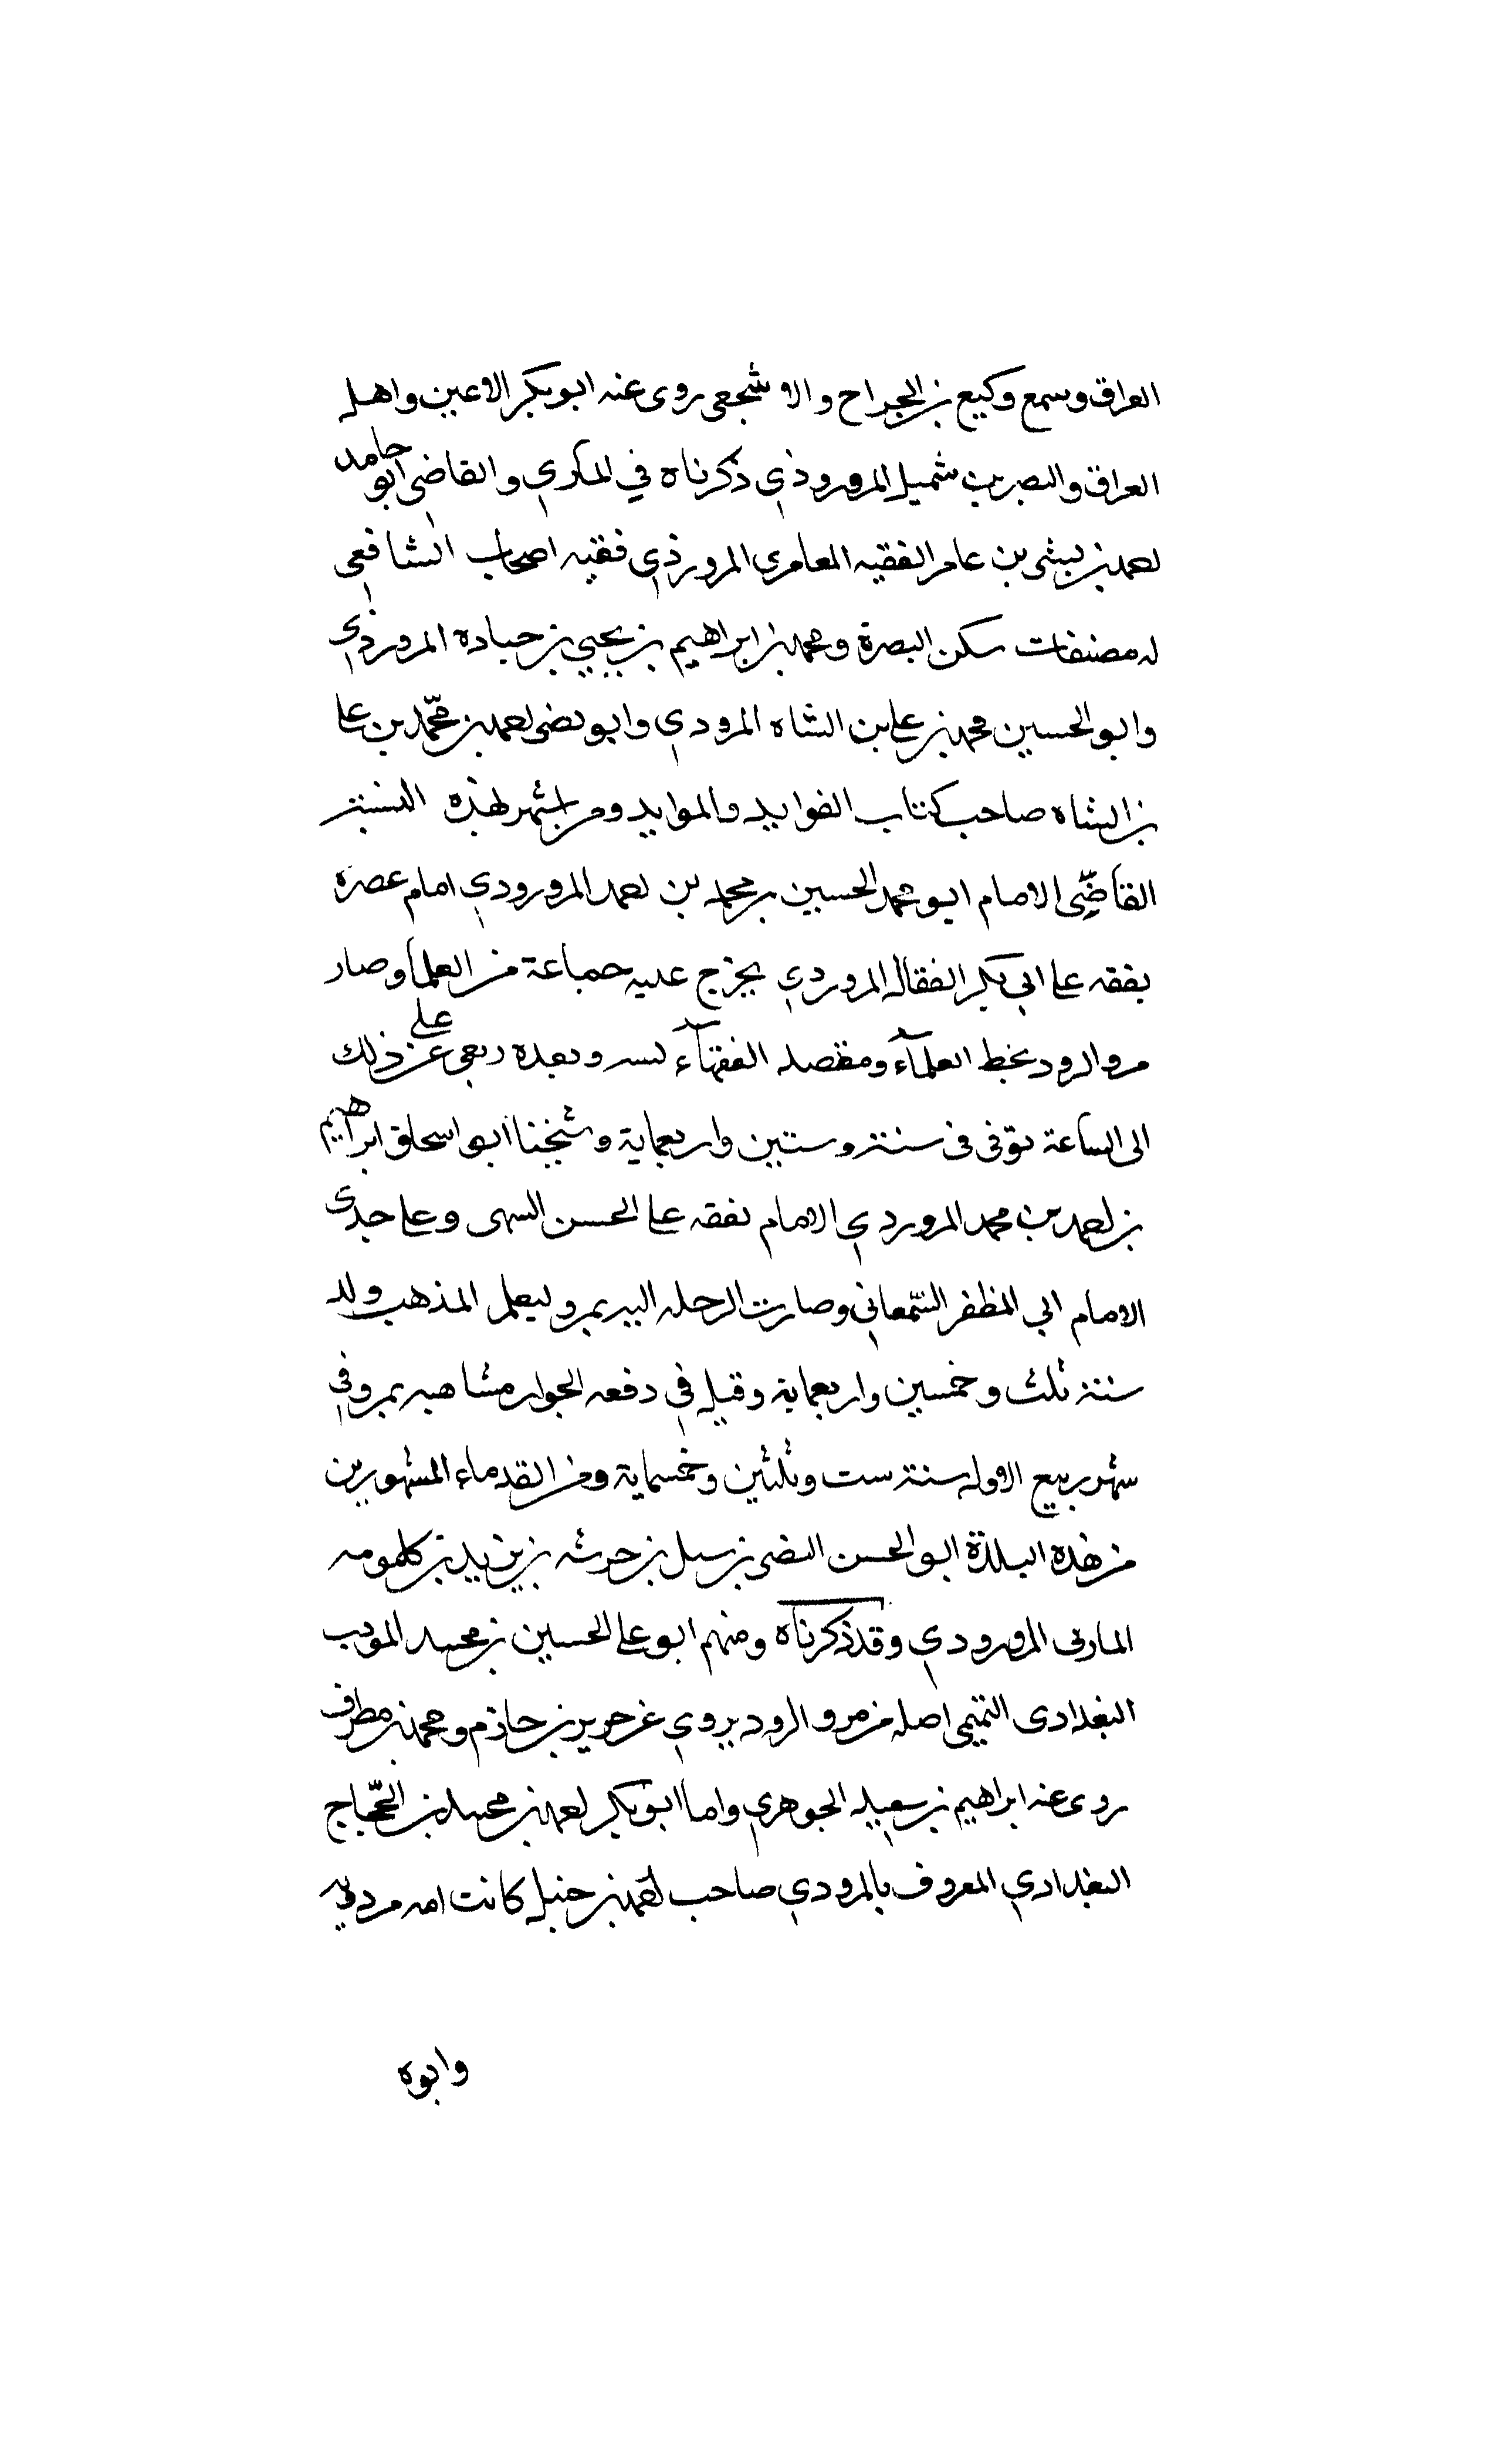 العراق وسمع وكيع بن الجراح والاشجعى روى عنه ابو بكر الاعين واهل
العراق والنصر بن شميل المروروذي ذكرناه في المازي والقاضي ابو حامد
احمد بن بشى بن عامر الفقيه العامري المرورذي فقيه اصحاب الشافعى
له مصنفات سكن البصرة ومحمد بن ابراهيم بن يحيي بن جناده المروذي
وابو الحسين محمد بن على بن الشاه المرودي وابو نضى احمد بن محمّد بن على
بن الشاه صاحب كتاب الفوايد والموايد ومن اشتهر بهذه النسبة
القاضي الامام ابو محمد الحسين بن محمد بن احمد المرورودي امام عصره
تفقه على ابي بكر القفال المروردي تخرج عليه جماعة من العلما وصار
مرو الرود بخط العلمآء ومقصد الفقهآء وبعده على ذلك
الى الساعة توفى في سنة وستين واربعماية وشيخنا ابو اسحاق ابراهيم
بن احمد بن محمد المروردي الامام تفقه على الحسن وعلى جدى
الامام ابي المظفر السّمعاني وصارت الرحله اليه بمرو ليعلم المذهب ولد
سنة ثلث وخمسين واربعماية وقيل في دفعه بمرو في
شهر ربيع الاول سنة ست وثلثين وخمسماية ومن القدماء المشهورين
من هذه البلدة ابو الحسن النضى بن شميل بن خرشه بن يزيد بن كلثومه
المازنى المرورودي وقد ذكرناه ومنهم ابو على الحسين بن محمد المودب
البغدادى التميمى اصله من مرو الرود يروي عن جرير بن حازم ومحمد بن مطرف
روى عنه ابراهيم بن سعيد الجوهري واما ابو بكر احمد بن محمد بن الحجّاج
البغدادي المعروف بالمرودي صاحب احمد بن حنبل كانت امه مروذيه
وابوه